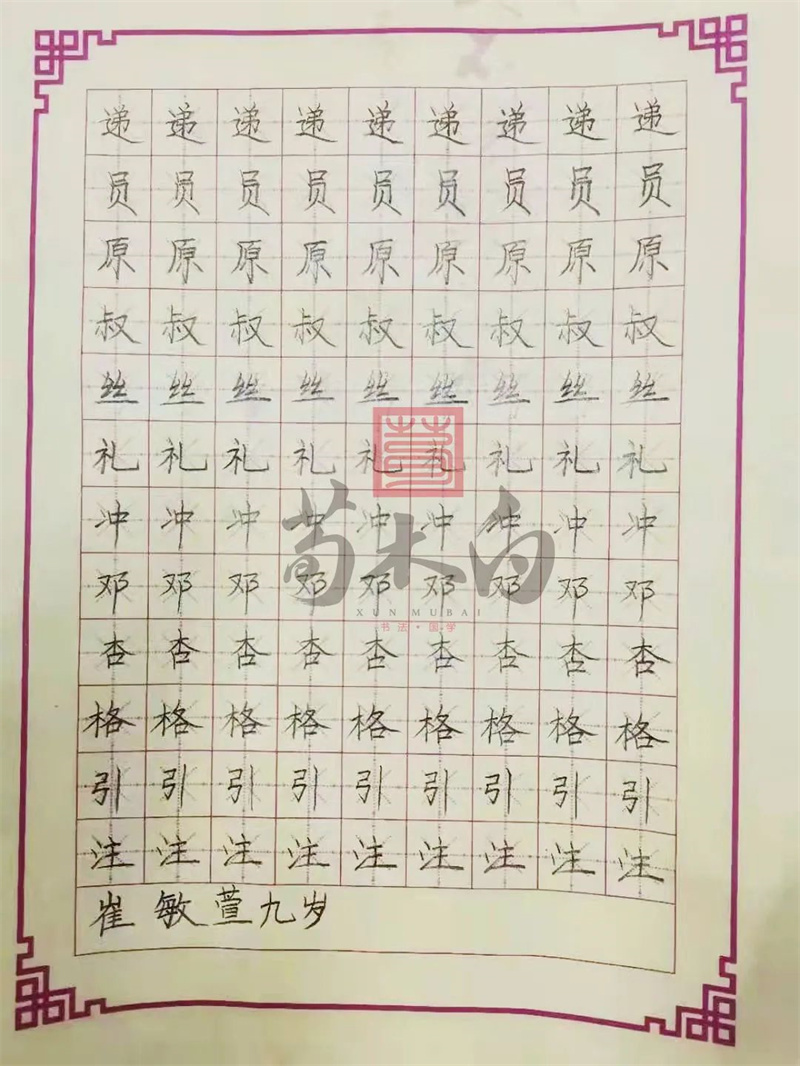 递 递 递 递 递 递 递 递 递
员 员 员 员 员 员 员 员 员
原 原 原 原 原 原 原 原 原
叔 叔 叔 叔 叔 叔 叔 叔 叔
丝 丝 丝 丝 丝 丝 丝 丝 丝
礼 礼 礼 礼 礼 礼 礼 礼 礼
冲 冲 冲 冲 冲 冲 冲 冲 冲
荀木白
邓 邓 邓 邓 邓 邓 邓 邓 邓
XUNMUBAI
书法·国学
杏 杏 杏 杏 杏 杏 杏 杏 杏
格 格 格 格 格 格 格 格 格
引 引 引 引 引 引 引 引 引
注 注 注 注 注 注 注 注 注
崔敏萱九岁